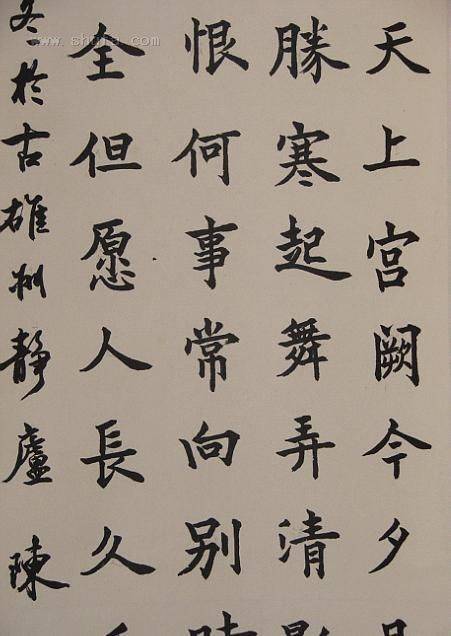 天上宮阙今夕
勝寒起舞弄清
恨何事常向别
全但愿人長久
冬於古雄州靜廬陳